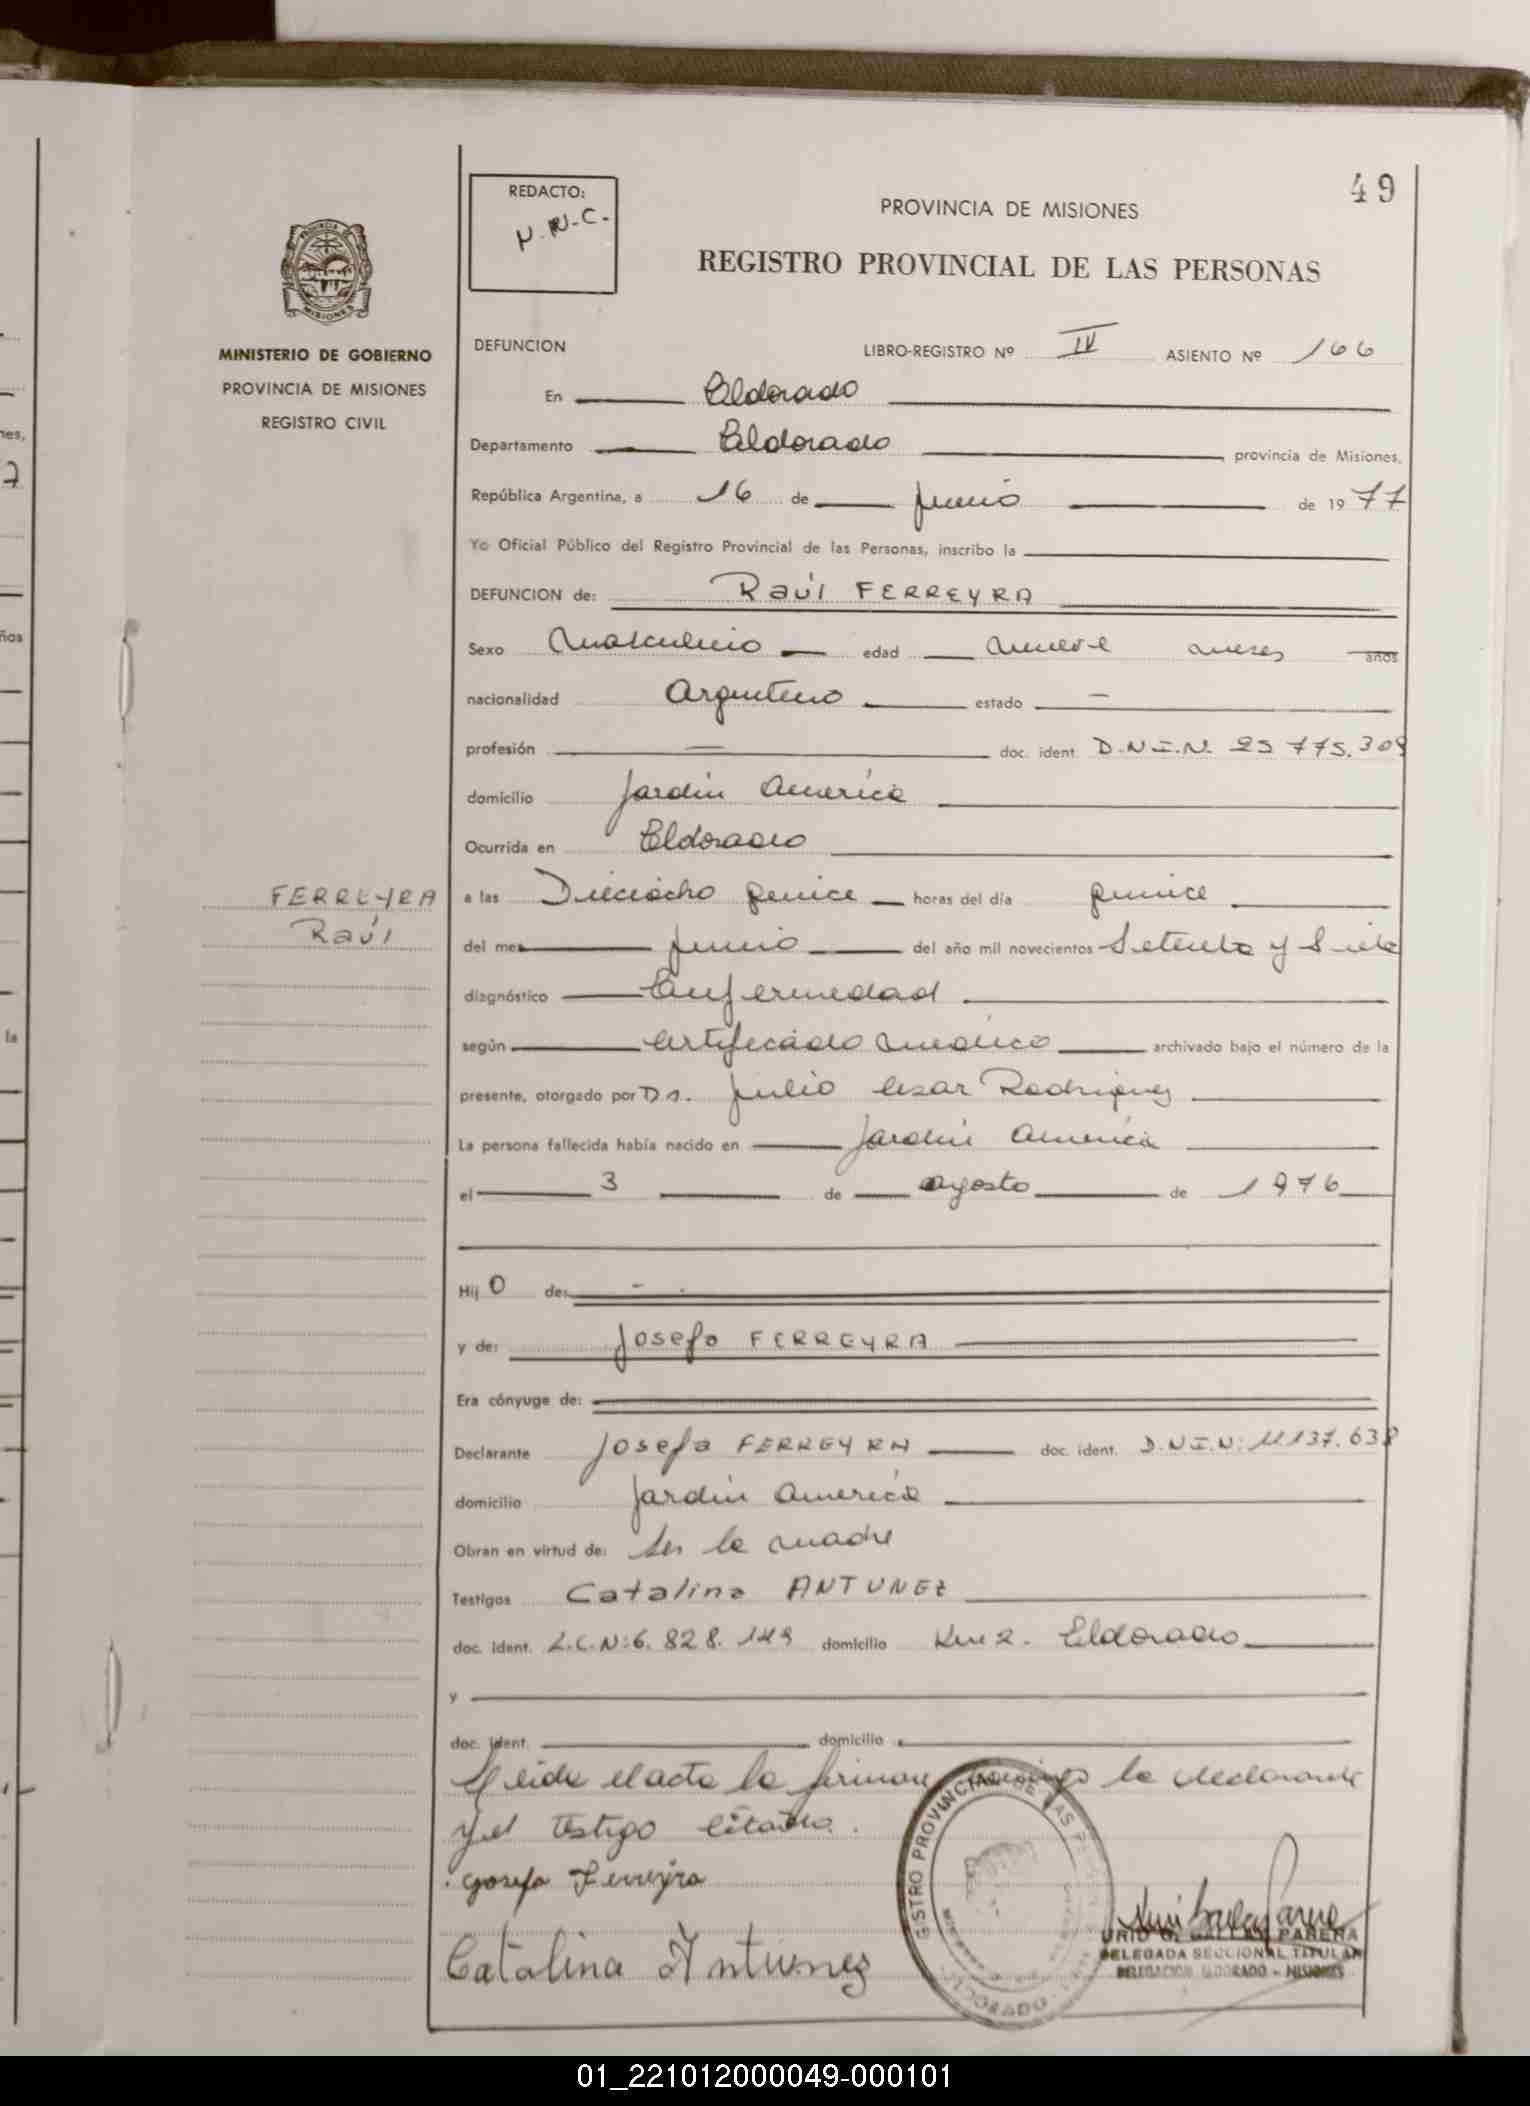 49
REDACTO:
N.N.C.
PROVINCIA DE MISIONES
REGISTRO PROVINCIAL DE LAS PERSONAS
PROVINCIA DE
MISIONES
MINISTERIO DE GOBIERNO
PROVINCIA DE MISIONES
REGISTRO CIVIL
DEFUNCION LIBRO-REGISTRO Nº IV ASIENTO Nº 166
En Eldorado
Departamento Eldorado provincia de Misiones,
República Argentina, a 16 de junio de 1977
Yo Oficial Público del Registro Provincial de las Personas, inscribo la
DEFUNCION de: Raúl FERREYRA
Sexo Masculino edad nueve meses años
nacionalidad Argentino estado —
profesión — doc. ident. D.N.I.N. 25 775.309
domicilio Jardin America
Ocurrida en Eldorado
FERREYRA
Raúl
a las Dieciocho quince horas del día quince
del mes junio del año mil novecientos Setenta y Siete
diagnóstico Enfermedad
según certificado medico archivado bajo el número de la
presente, otorgado por Dr. Julio Cesar Rodriguez
La persona fallecida había nacido en Jardin America
el 3 de agosto de 1976
Hij o de: -
y de: Josefa FERREYRA
Era cónyuge de:
Declarante Josefa FERREYRA doc. ident. D.N.I.N: 11137.638
domicilio Jardin America
Obran en virtud de: Ser la madre
Testigos Catalina ANTUNEZ
doc. ident. L.C.N:6.828.149 domicilio Km 2. Eldorado
y
doc. ident. domicilio
Leida el acta la firman conmigo la declarante
y el testigo citado.
Josefa Ferreyra
Catalina Antunez
DELEGADA SECCIONAL TITULAR
DELEGACION ELDORADO - MISIONES
01_221012000049-000101